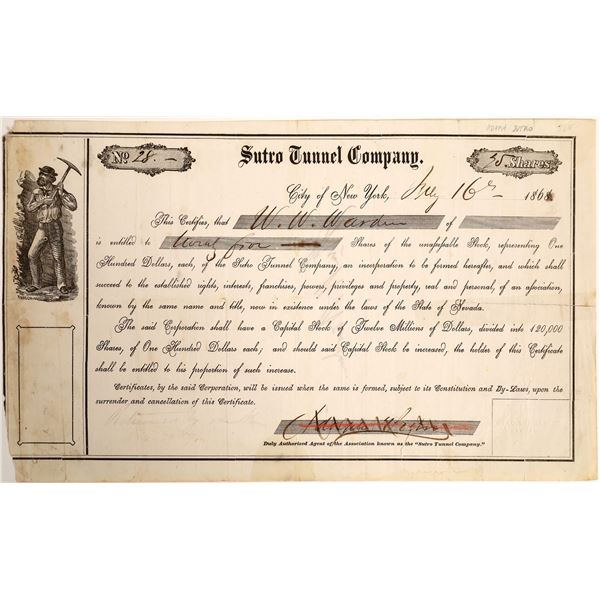 ADOLPH SUTRO
No 28.–
Sutro Tunnel Company.
25 Shares
City of New York, July 16th 1868
This Certifies, that W. W. Warden of
is entitled to twenty five Shares of the unassessable Stock, representing One
Hundred Dollars, each, of the Sutro Tunnel Company, an incorporation to be formed hereafter, and which shall
succeed to the established rights, interests, franchises, powers, privileges and property, real and personal, of an association,
known by the same name and title, now in existence under the laws of the State of Nevada.
The said Corporation shall have a Capital Stock of Twelve Millions of Dollars, divided into 120,000
Shares, of One Hundred Dollars each; and should said Capital Stock be increased, the holder of this Certificate
shall be entitled to his proportion of such increase.
Certificates, by the said Corporation, will be issued when the same is formed, subject to its Constitution and By-Laws, upon the
surrender and cancellation of this Certificate.
Duly Authorized Agent of the Association known as the "Sutro Tunnel Company."